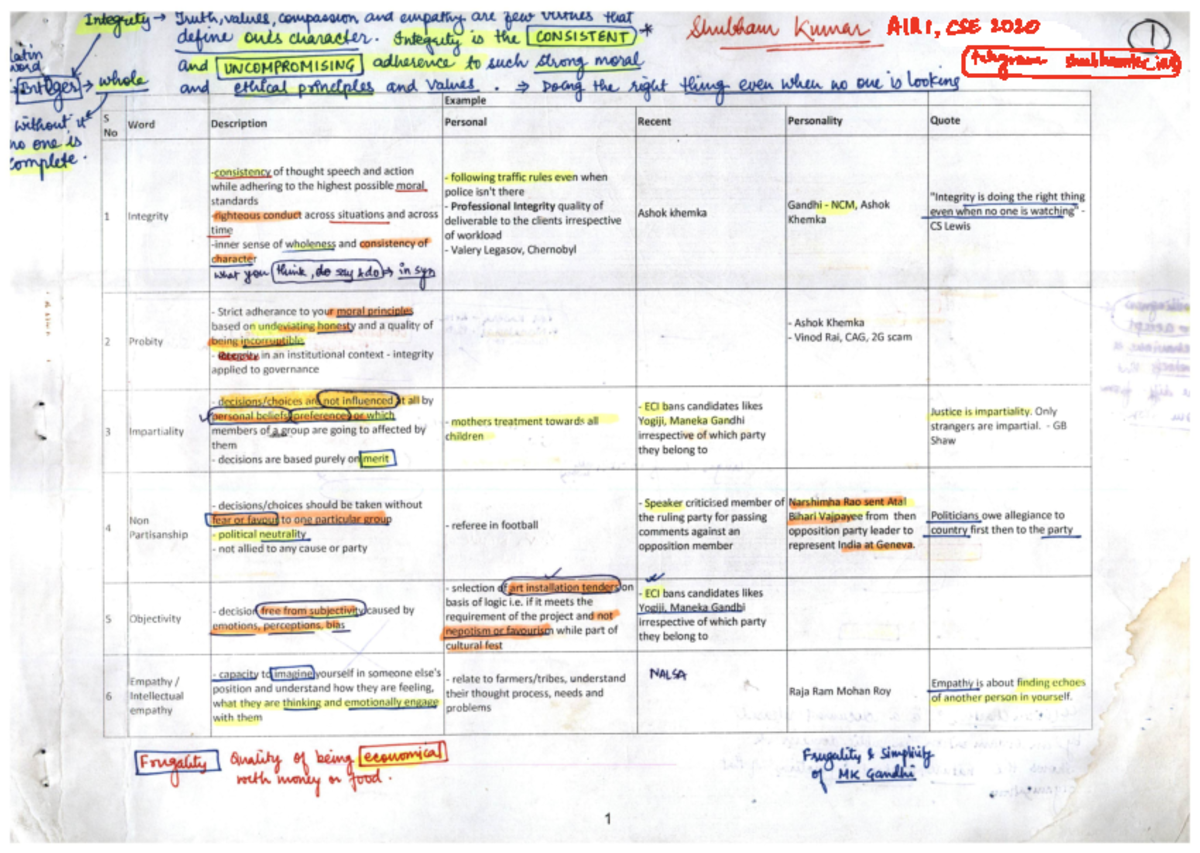 Integrity → Truth, values, compassion and empathy are few virtues that
define one's character. Integrity is the CONSISTENT *
and UNCOMPROMISING adherence to such strong moral
and ethical principles and values. ⇒ Doing the right thing even when no one is looking
Shubham Kumar AIR1, CSE 2020
1
telegram
latin
word
Integer → whole
without it
no one is
complete.
Example
S No Word Description Personal Recent Personality Quote
1 Integrity
-consistency of thought speech and action
while adhering to the highest possible moral
standards
-righteous conduct across situations and across
time
-inner sense of wholeness and consistency of
character
what you think, do say & do → in syn
- following traffic rules even when
police isn't there
- Professional Integrity quality of
deliverable to the clients irrespective
of workload
- Valery Legasov, Chernobyl
Ashok khemka
Gandhi - NCM, Ashok
Khemka
"Integrity is doing the right thing
even when no one is watching" -
CS Lewis
2 Probity
- Strict adherence to your moral principles
based on undeviating honesty and a quality of
being incorruptible
- integrity in an institutional context - integrity
applied to governance
- Ashok Khemka
- Vinod Rai, CAG, 2G scam
3 Impartiality
- decisions/choices are not influenced at all by
personal beliefs/preferences or which
members of a group are going to affected by
them
- decisions are based purely on merit
- mothers treatment towards all
children
- ECI bans candidates likes
Yogiji, Maneka Gandhi
irrespective of which party
they belong to
Justice is impartiality. Only
strangers are impartial. - GB
Shaw
4 Non
Partisanship
- decisions/choices should be taken without
fear or favour to one particular group
- political neutrality
- not allied to any cause or party
- referee in football
- Speaker criticised member of
the ruling party for passing
comments against an
opposition member
Narshimha Rao sent Atal
Bihari Vajpayee from then
opposition party leader to
represent India at Geneva.
Politicians owe allegiance to
country first then to the party
5 Objectivity
- decision free from subjectivity caused by
emotions, perceptions, bias
- selection of art installation tenders on
basis of logic i.e. if it meets the
requirement of the project and not
nepotism or favourism while part of
cultural fest
- ECI bans candidates likes
Yogiji, Maneka Gandhi
irrespective of which party
they belong to
6 Empathy /
Intellectual
empathy
- capacity to imagine yourself in someone else's
position and understand how they are feeling,
what they are thinking and emotionally engage
with them
- relate to farmers/tribes, understand
their thought process, needs and
problems
NALSA
Raja Ram Mohan Roy
Empathy is about finding echoes
of another person in yourself.
Frugality Quality of being economical
with money or food.
Frugality & simplicity
of MK Gandhi
1